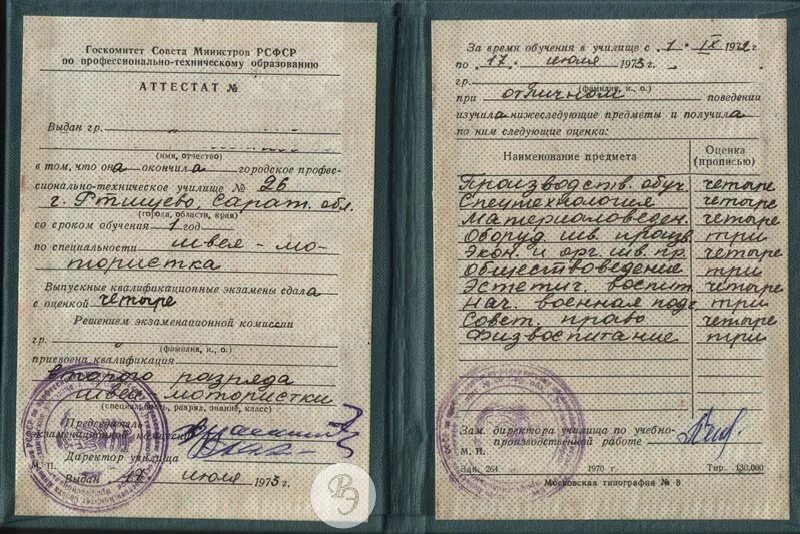 Госкомитет Совета Министров РСФСР
по профессионально-техническому образованию
АТТЕСТАТ №
Выдан гр.
(имя, отчество)
в том, что она окончила городское профес-
сионально-техническое училище № 26
г. Ртищево, Сарат. обл.
(города, области, края)
со сроком обучения 1 год
по специальности швея-мо-
тористка
Выпускные квалификационные экзамены сдала
с оценкой четыре
Решением экзаменационной комиссии
гр.
(фамилия, и., о.)
присвоена квалификация
второго разряда
швеи мотористки
(специальность, разряд, звание, класс)
Председатель
экзаменационной комиссии
Директор училища
М. П.
Выдан 17 июля 1973 г.
РЭ
За время обучения в училище с 1 IX 1972 г
по 17 июля 1973 г.
гр.
(фамилия, и., о.)
при отличном поведении
изучила нижеследующие предметы и получила
по ним следующие оценки:
Наименование предмета Оценка
(прописью)
Производств. обуч. четыре
Спецтехнология четыре
Материаловеден. четыре
Оборуд. шв. произв. три
Экон. и орг. шв. пр. четыре
Обществоведение три
Эстетич. воспит. четыре
Нач. военная подг три
Совет. право четыре
Физвоспитание три
Зам. директора училища по учебно-
производственной работе
М. П.
Зак. 264 1970 г. Тир. 130.000
Московская типография № 8